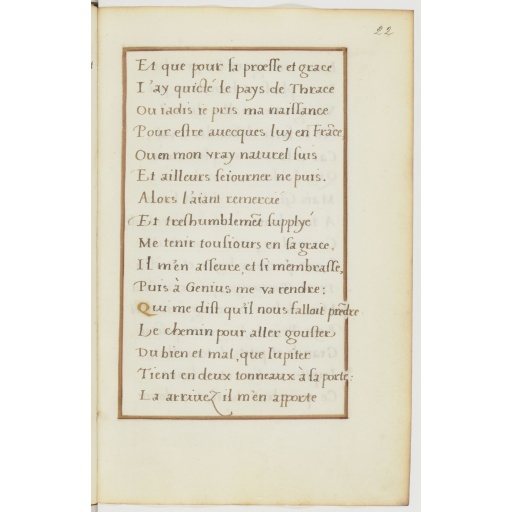 22
Et que pour sa proesse et grace
I'ay quicté le pays de Thrace
Ou iadis ie pris ma naissance
Pour estre auecques luy en Frãce,
Ou en mon vray naturel suis
Et ailleurs seiourner ne puis.
Alors l'aiant remercie
Et treshumblemẽt supplyé
Me tenir tousiours en sa grace,
Il m'en asseure, et si m'embrasse,
Puis à Genius me va rendre:
Qui me dist qu'il nous falloit prẽdre
Le chemin pour aller gouster
Du bien et mal, que Iupiter
Tient en deux tonneaux à sa porte:
La arriuez il m'en apporte